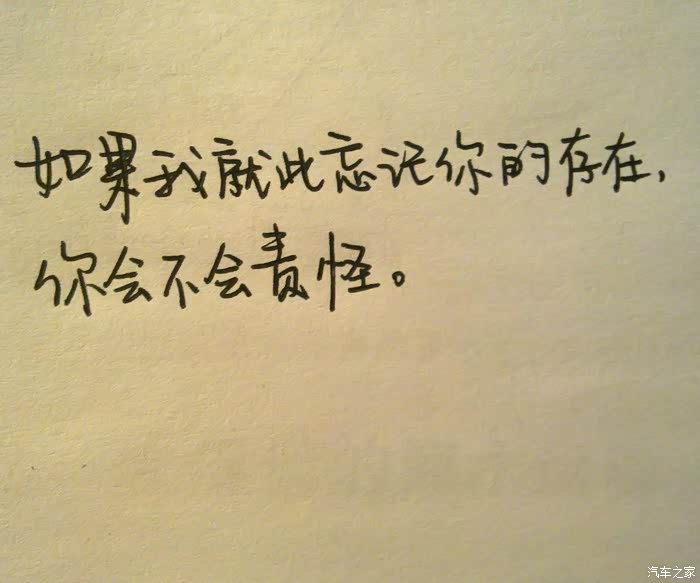 如果我就此忘记你的存在,
你会不会责怪。
汽车之家